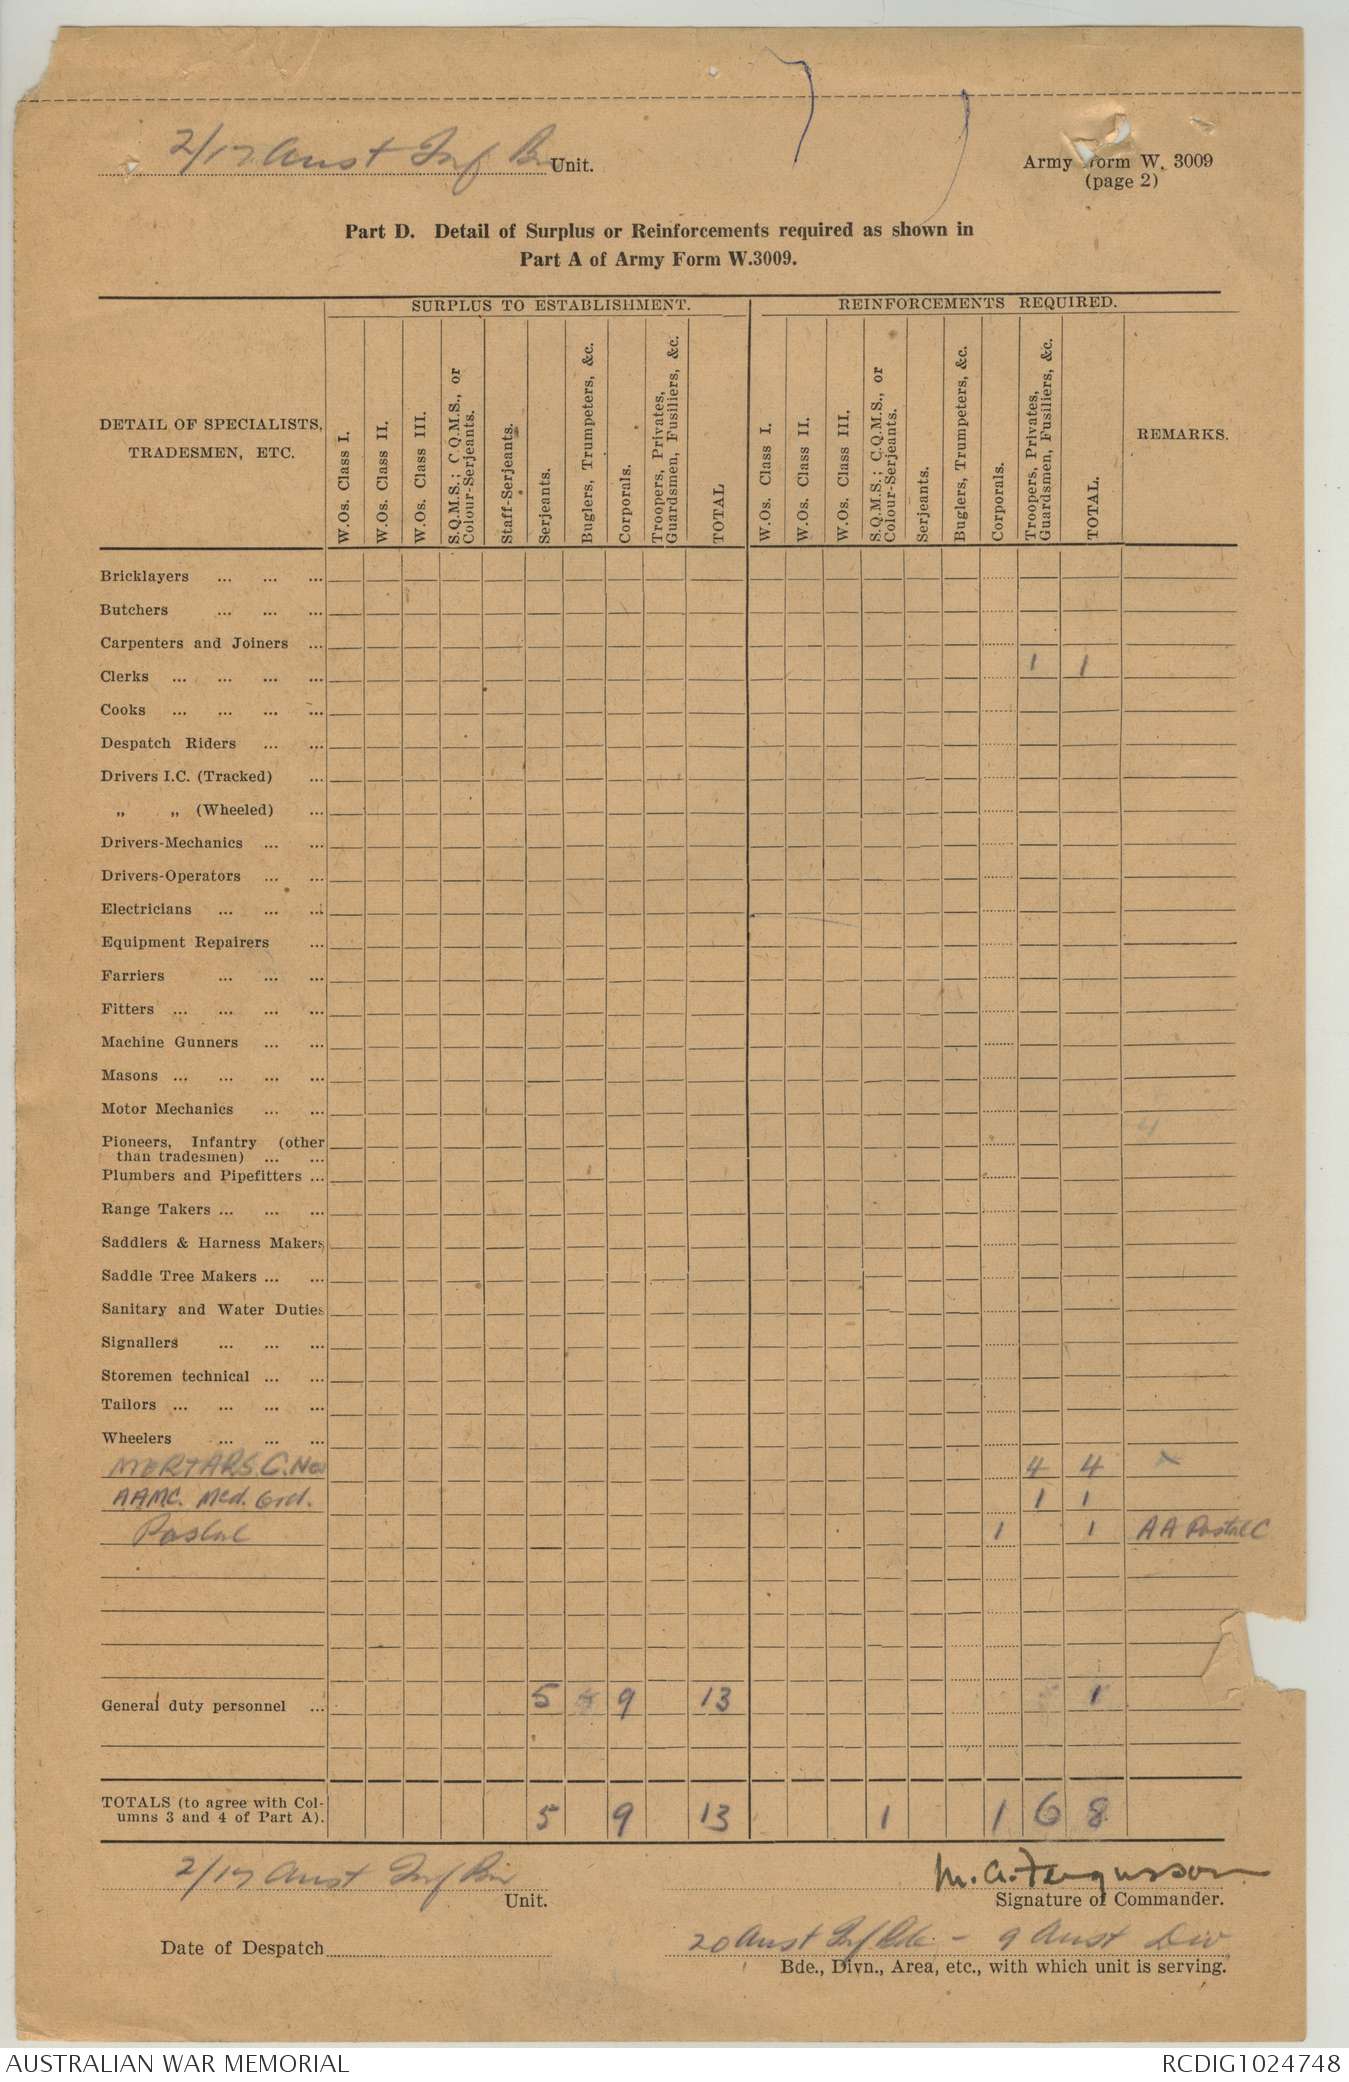 2/17 Aust Inf Bn Unit.
Army Form W. 3009
(page 2)
Part D. Detail of Surplus or Reinforcements required as shown in
Part A of Army Form W.3009.
SURPLUS TO ESTABLISHMENT.
REINFORCEMENTS REQUIRED.
DETAIL OF SPECIALISTS,
TRADESMEN, ETC.
W.Os. Class I.
W.Os. Class II.
W.Os. Class III.
S.Q.M.S.; C.Q.M.S., or
Colour-Serjeants.
Staff-Serjeants.
Serjeants.
Buglers, Trumpeters, &c.
Corporals.
Troopers, Privates,
Guardsmen, Fusiliers, &c.
TOTAL
W.Os. Class I.
W.Os. Class II.
W.Os. Class III.
S.Q.M.S.; C.Q.M.S., or
Colour-Serjeants.
Serjeants.
Buglers, Trumpeters, &c.
Corporals.
Troopers, Privates,
Guardsmen, Fusiliers, &c.
TOTAL.
REMARKS.
Bricklayers ... ... ...
Butchers ... ... ...
Carpenters and Joiners ...
Clerks ... ... ... ... 1 1
Cooks ... ... ... ...
Despatch Riders ... ...
Drivers I.C. (Tracked) ...
„ „ (Wheeled) ...
Drivers-Mechanics ... ...
Drivers-Operators ... ...
Electricians ... ... ...
Equipment Repairers ...
Farriers ... ... ...
Fitters ... ... ... ...
Machine Gunners ... ...
Masons ... ... ... ...
Motor Mechanics ... ...
Pioneers, Infantry (other 4
than tradesmen) ... ...
Plumbers and Pipefitters ...
Range Takers ... ... ...
Saddlers & Harness Makers
Saddle Tree Makers ... ...
Sanitary and Water Duties
Signallers ... ... ...
Storemen technical ... ...
Tailors ... ... ... ...
Wheelers ... ... ...
MORTARS. 4 4 x
AAMC. Med. Ord. 1 1
Postal 1 1 AA Postal C
General duty personnel ... 5 9 13 1
TOTALS (to agree with Col-
umns 3 and 4 of Part A). 5 9 13 1 1 6 8
2/17 Aust Inf Bn
Unit.
M. A. Fergusson
Signature of Commander.
Date of Despatch
20 Aust Inf Bde - 9 Aust Div
Bde., Divn., Area, etc., with which unit is serving.
AUSTRALIAN WAR MEMORIAL
RCDIG1024748